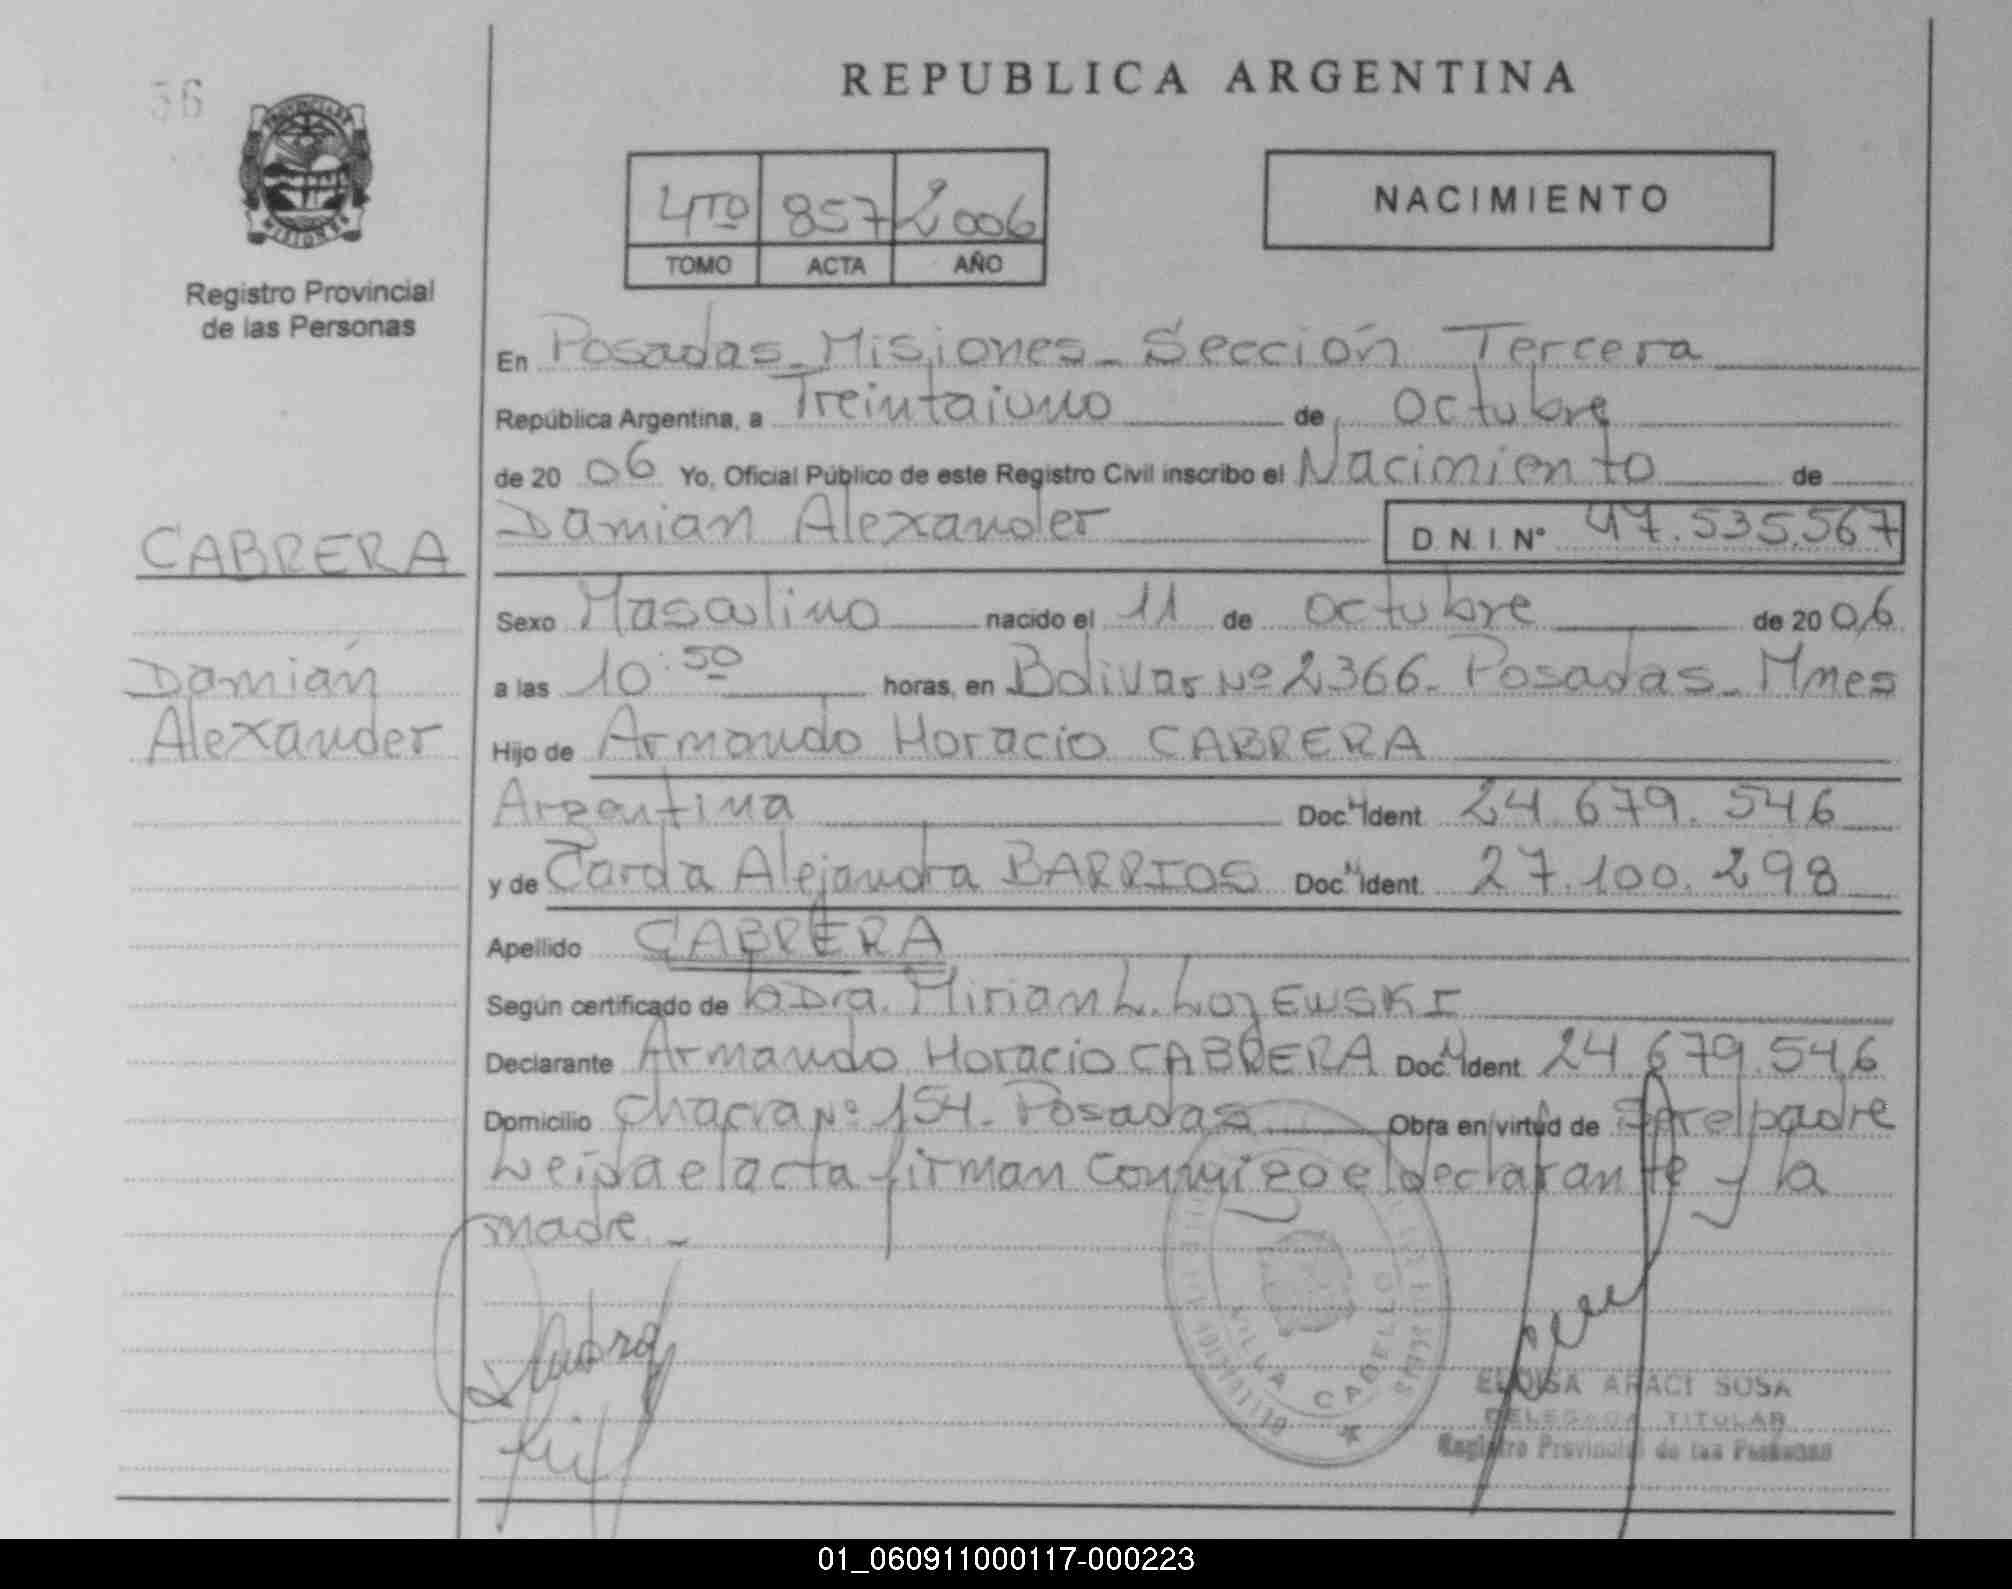 56
REPUBLICA ARGENTINA
4TO 857 2006
TOMO ACTA AÑO
NACIMIENTO
PROVINCIA DE
MISIONES
Registro Provincial
de las Personas
En Posadas - Misiones - Sección Tercera
República Argentina, a Treintaiuno de Octubre
de 20 06 Yo, Oficial Público de este Registro Civil inscribo el Nacimiento de
Damian Alexander D.N.I. Nº 47.535.567
CABRERA
Damián
Alexander
Sexo Masculino nacido el 11 de octubre de 20 06
a las 10:50 horas, en Bolivar Nº 2366 - Posadas - Mnes
Hijo de Armando Horacio CABRERA
Argentina Doc. Ident. 24.679.546
y de Alejandra BARRIOS Doc. Ident. 27.100.298
Apellido CABRERA
Según certificado de la Dra. Mirian L. LozEWSKI
Declarante Armando Horacio CABRERA Doc. Ident. 24.679.546
Domicilio Chacra Nº 154 - Posadas Obra en virtud de Ser el padre
Leida el acta firman conmigo el declarante y la
madre. -
VILLA CABELLO
ELOISA ARACI SOSA
DELEGADA TITULAR
Registro Provincial de las Personas
01_060911000117-000223